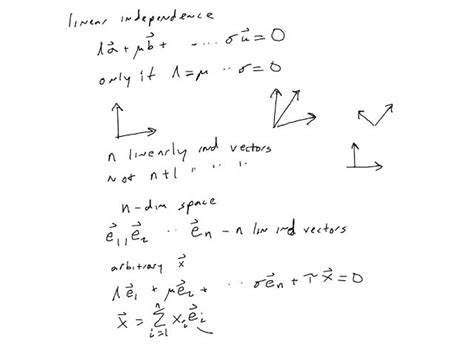 linear independence
λa⃗ + μb⃗ + ---- σu⃗ = 0
only if λ = μ -- σ = 0
n linearly ind vectors
not n+1 " " " "
n-dim space
e⃗₁, e⃗₂ -- e⃗n - n lin ind vectors
arbitrary x⃗
λe⃗₁ + μe⃗₂ + -- σe⃗n + τx⃗ = 0
x⃗ = Σⁿᵢ₌₁ xᵢe⃗ᵢ